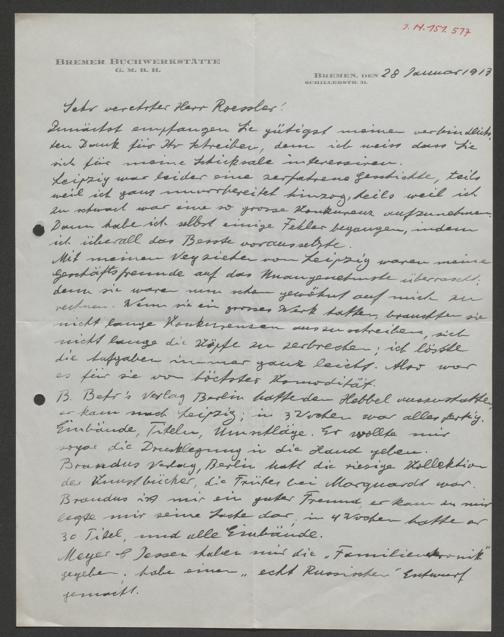 I. N. 151.577
BREMER BUCHWERKSTÄTTE
G. M. B. H.
BREMEN, DEN 28 Januar 1913
SCHILLERSTR. 31.
Sehr verehrter Herr Roessler!
Zunächst empfangen Sie gütigst meinen verbindlich-
sten Dank für Ihr Schreiben, denn ich weiss dass Sie
sich für meine Schicksale interessieren.
Leipzig war leider eine zerfahrene Geschichte, teils
weil ich ganz unvorbereitet hinzog, teils weil ich
zu schwach war eine so grosse Konkurenz aufzunehmen.
Dann habe ich selbst einige Fehler begangen, indem
ich überall das Beste voraussetzte.
Mit meinem Wegziehen von Leipzig waren meine
Geschäftsfreunde auf das Unangenehmste überrascht;
denn sie waren nun schon gewöhnt auf mich zu
rechnen. Wenn sie ein grosses Werk hatten, brauchten sie
nicht lange Konkurenzen auszuschreiben, sich
nicht lange die Köpfe zu zerbrechen; ich löste
die Aufgaben immer ganz leicht. Also war
es für sie von höchster Komodität.
B. Behr's Verlag Berlin hatte den Hebbel auszustatten,
er kam nach Leipzig; in 3 Wochen war alles fertig.
Einbände, Titeln, Umschläge. Er wollte mir
sogar die Drucklegung in die Hand geben.
Brandus Verlag, Berlin hatt die riesige Kollektion
der Kunstbücher, die früher bei Marquardt war.
Brandus ist mir ein guter Freund, er kam zu mir
legte mir seine Sache dar, in 4 Wochen hatte er
30 Titel, und alle Einbände.
Meyer & Jessen haben mir die „Familienkronik"
gegeben; habe einen „echt Russischen" Entwurf
gemacht.